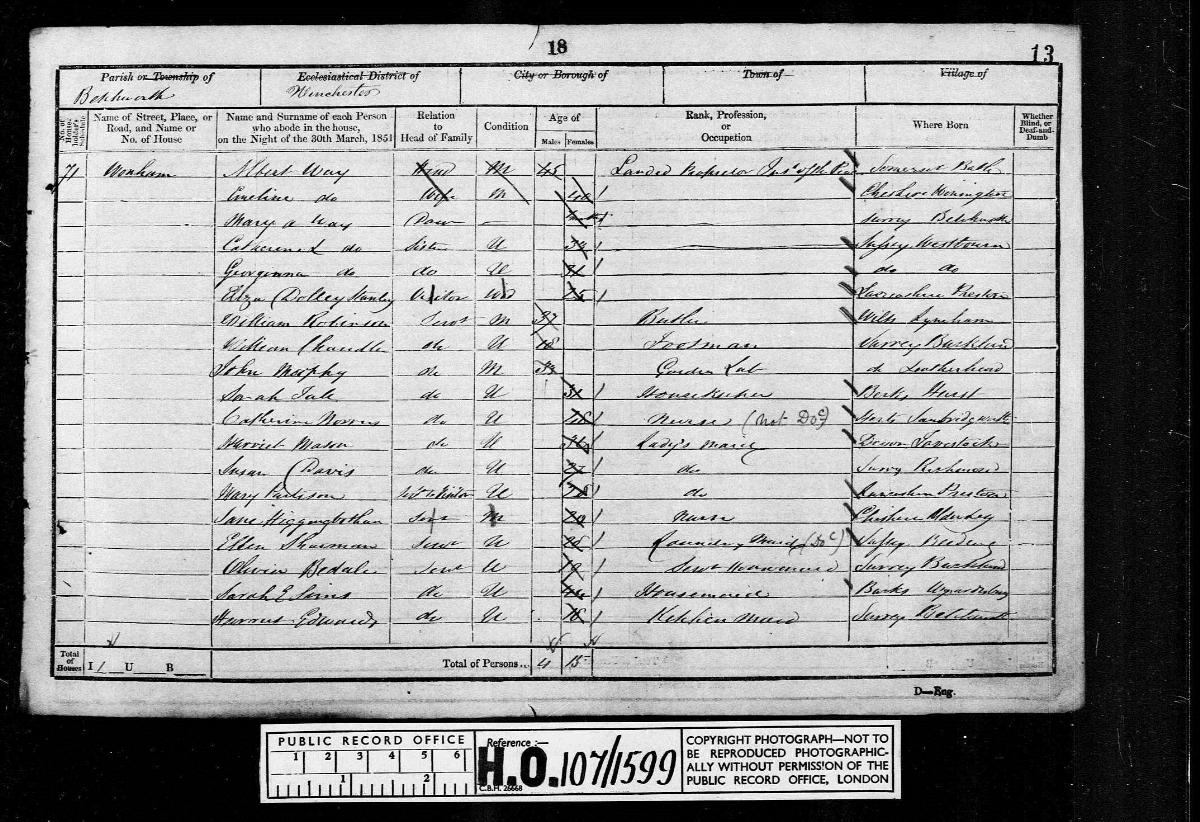 18
13
Parish or Township of
Ecclesiastical District of
City or Borough of
Town of
Village of
Betchworth
Winchester
No. of House-holder's Schedule
Name of Street, Place, or Road, and Name or No. of House
Name and Surname of each Person who abode in the house, on the Night of the 30th March, 1851
Relation to Head of Family
Condition
Age of
Males
Females
Rank, Profession, or Occupation
Where Born
Whether Blind, or Deaf-and-Dumb
71 Wonham Albert Way Head M 45 Landed Proprietor Somerset Bath
Emeline do Wife M 40 Cheshire
Mary A Way Daur — Surrey Betchworth
Catherine L do Sister U Sussex Westbourn
Georgenna do do U 31 do do
Eliza Dolley Stanley Visitor Wid 75 Lancashire Preston
William Robinson Servt M 37 Butler Wilts Lyneham
William Chandler do U 18 Footman Surrey Buckland
John Morphy do M Garden Lab do Leatherhead
Sarah do U 51 Housekeeper Berks Hurst
Catherine Norris do U 48 Nurse (not Doc) Herts
Harriet Mason do U Lady's Maid Devon Tavistock
Susan Davis do U 27 do Surrey Richmond
Mary Pattison Svt to Visitor U do Lancashire Preston
Jane Higginbotham Servt M 20 Nurse Cheshire Alderley
Ellen Sharman Servt U 28 Laundry Maid (Doc) Sussex
Olivia Bedale Servt U 19 Servt Housemaid Surrey Buckland
Sarah E do U Housemaid Bucks Wyrardisbury
Edwards do U 18 Kitchen Maid Surrey Betchworth
Total of Houses
I 1 U B
Total of Persons... 4 15
D—Eng.
PUBLIC RECORD OFFICE
1 2 3 4 5 6
1 2
Reference :—
H.O. 107/1599
C.B.H. 26668
COPYRIGHT PHOTOGRAPH—NOT TO
BE REPRODUCED PHOTOGRAPHIC-
ALLY WITHOUT PERMISSION OF THE
PUBLIC RECORD OFFICE, LONDON